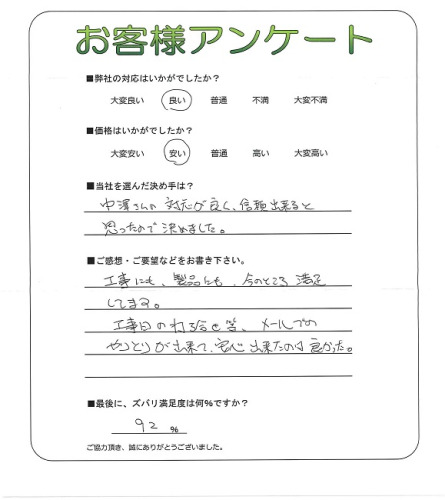 お客様アンケート
■弊社の対応はいかがでしたか？
大変良い 良い 普通 不満 大変不満
■価格はいかがでしたか？
大変安い 安い 普通 高い 大変高い
■当社を選んだ決め手は？
中澤さんの対応が良く、信頼出来ると
思ったので決めました。
■ご感想・ご要望などをお書き下さい。
工事にも、製品にも、今のところ満足
してます。
工事日の打合せ等、メールでの
やりとりが出来て、安心出来たのは良かった。
■最後に、ズバリ満足度は何%ですか？
92 %
ご協力頂き、誠にありがとうございました。